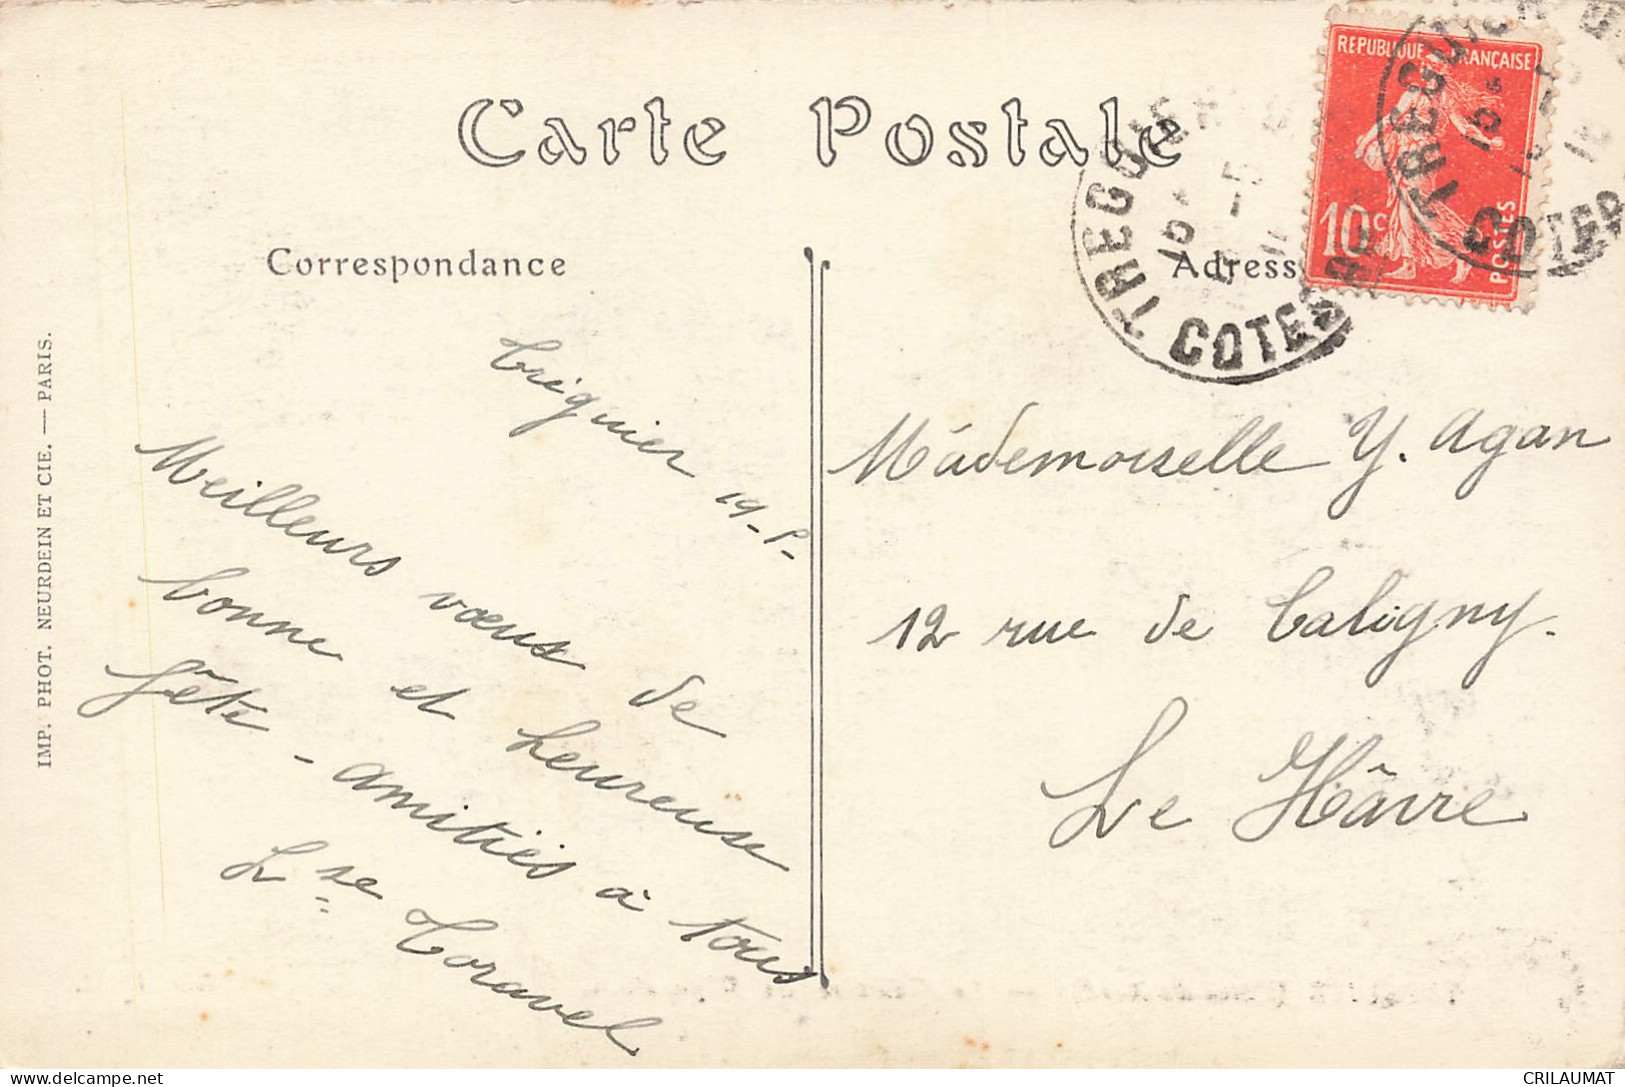 Carte Postale
Correspondance
Adress
REPUBLIQUE FRANÇAISE
10c
POSTES
TREGUIER
COTES DU
TREGUIER
COTES
Tréguier
19-5-
Meilleurs vœux de
bonne et heureuse
fête - amitiés à tous
Lse Coravel
Mademoiselle Y. Agan
12 rue de Caligny.
Le Hâvre
IMP. PHOT. NEURDEIN ET CIE. — PARIS.
CRILAUMAT